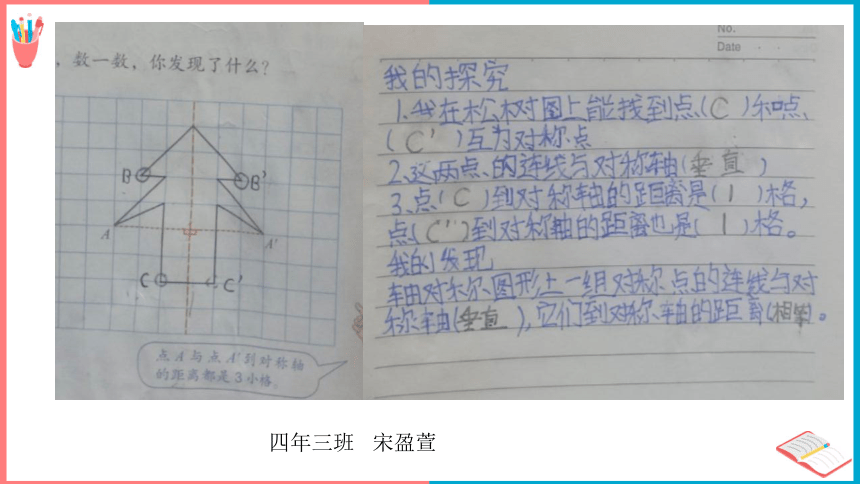 ，数一数，你发现了什么？
B
B'
A
A'
C
C'
点A与点A'到对称轴
的距离都是3小格。
No.
Date
我的探究
1.我在松树图上能找到点(C)和点
(C')互为对称点
2.这两点的连线与对称轴(垂直)
3.点(C)到对称轴的距离是(1)格，
点(C')到对称轴的距离也是(1)格。
我的发现
轴对称图形上一组对称点的连线与对
称轴(垂直)，它们到对称轴的距离(相等)。
四年三班 宋盈萱